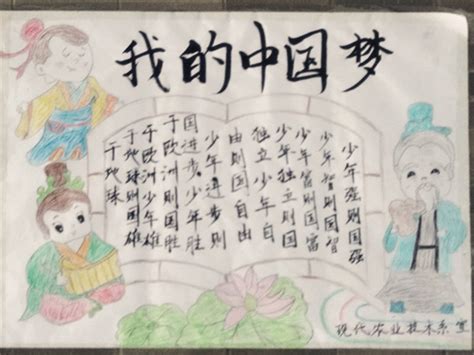 我的中国梦
少年强则国强
少年智则国智
少年富则国富
少年独立则国
独立少年自
由则国自由
少年进步则
国进步,少年胜
于欧洲则国胜
于欧洲少年雄
于地球则国雄
于地球
现代农业技术系宣